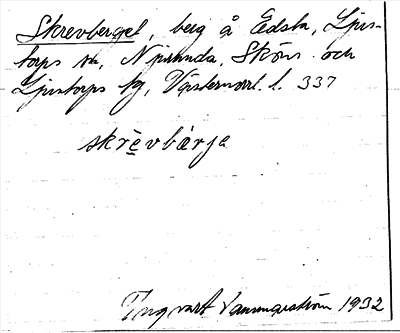 Skrevberget, berg å Edsta, Ljus-
torps sn, Njurunda, Sköns och
Ljustorps tg, Västernorrl. l. 337
skrèvbærja
Ingvart Vannerström 1932